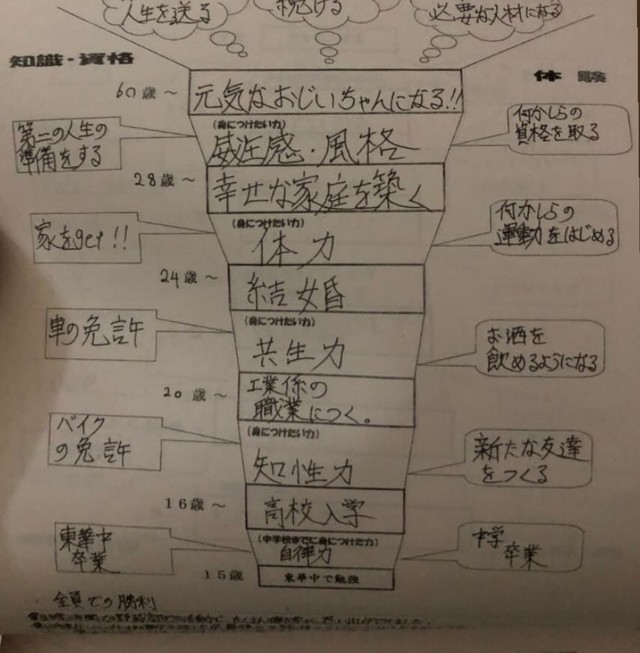 人生を送る
稼げる
必要な人材になる
知識・資格
体験
60歳～
元気なおじいちゃんになる!!
第二の人生の
準備をする
(身につけたい力)
威圧感・風格
何かしらの
資格を取る
28歳～
幸せな家庭を築く
家をget!!
(身につけたい力)
体力
何かしらの
運動をはじめる
24歳～
結婚
車の免許
(身につけたい力)
共生力
お酒を
飲めるようになる
20歳～
工業係の
職業につく。
バイク
の免許
(身につけたい力)
知性力
新たな友達
をつくる
16歳～
高校入学
東華中
卒業
(中学校までに身につけた力)
自律力
中学
卒業
15歳
東華中で勉強
全員での勝利